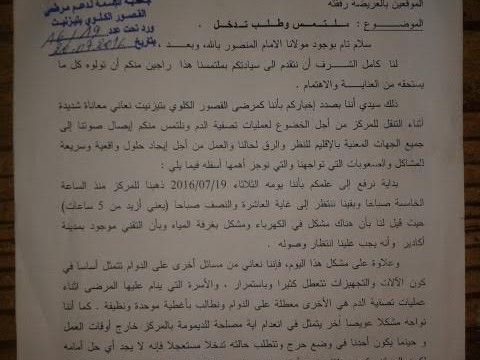 جمعية البسمة لدعم مرضى
القصور الكلوي بتيزنيت
ورد تحت عدد 16/19
بتاريخ
الموقعين بالعريضة رفقته
الموضوع : ملتمس وطلب تدخل .
سلام تام بوجود مولانا الامام المنصور بالله، وبعد ،
لنا كامل الشرف أن نتقدم الى سيادتكم بملتمسنا هذا راجين منكم أن تولوه كل ما
يستحقه من العناية والاهتمام .
ذلك سيدي أننا بصدد إخباركم بأننا كمرضى القصور الكلوي بتيزنيت نعاني معاناة شديدة
أثناء التنقل للمركز من أجل الخضوع لعمليات تصفية الدم ونلتمس منكم إيصال صوتنا إلى
جميع الجهات المعنية بالإقليم للنظر والرق لحالنا والعمل من أجل إيجاد حلول واقعية وسريعة
للمشاكل والصعوبات التي تواجهنا والتي نوجز أهمها أسفله فيما يلي :
بداية نرفع إلى علمكم بأننا يومه الثلاثاء 2016/07/19 ذهبنا للمركز منذ الساعة
الخامسة صباحا وبقينا ننتظر إلى غاية العاشرة والنصف صباحا (يعني أزيد من 5 ساعات)
حيث قيل لنا بأن هناك مشكل في الكهرباء ومشكل بغرفة المياه وبأن التقني موجود بمدينة
أكادير وأنه يجب علينا انتظار وصوله .
وعلاوة على مشكل هذا اليوم، فإننا نعاني من مسائل أخرى على الدوام تتمثل أساسا في
كون الآلات والتجهيزات تتعطل كثيرا وباستمرار ، والأسرة التي ينام عليها المرضى اثناء
عمليات تصفية الدم هي الأخرى معطلة على الدوام ونطالب بأغطية موحدة ونظيفة . كما أننا
نواجه مشكلا عويصا آخر يتمثل في انعدام اية مصلحة للديمومة بالمركز خارج أوقات العمل
و حينما يكون أحدنا في وضع حرج وتتطلب حالته تدخلا مستعجلا فإنه لا يجد أي حل أمامه